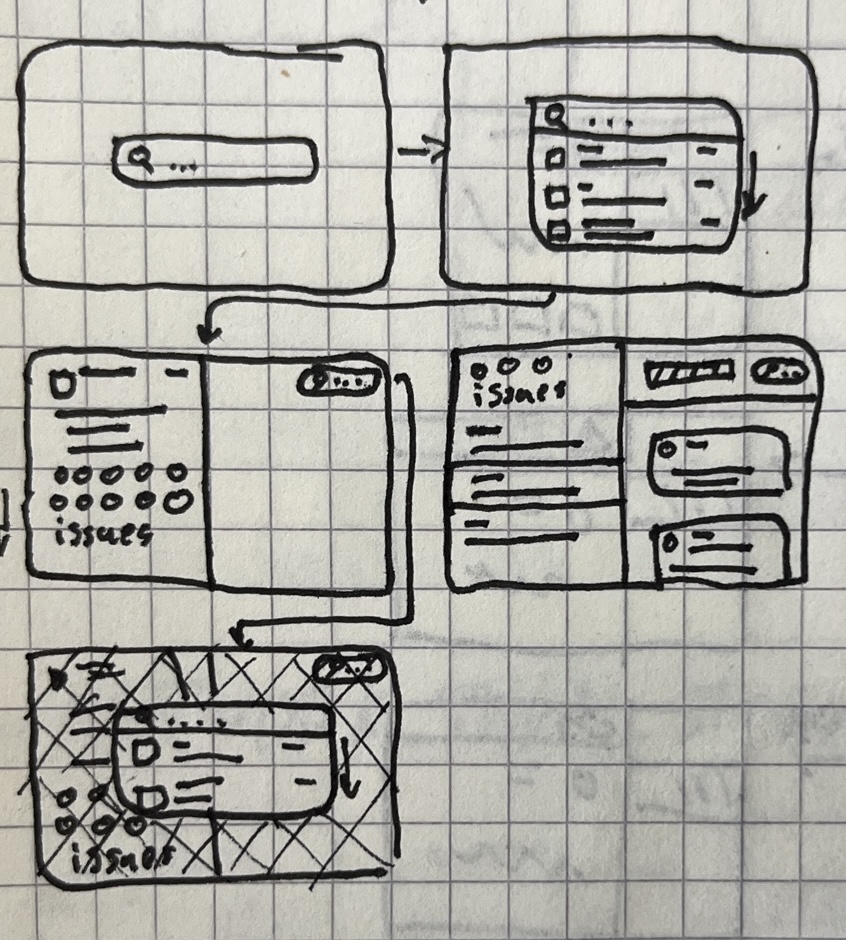 ...
...
...
issues
...
issues
...
....
issues